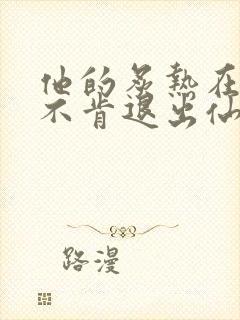 他的炙热在
不肯退出仙
路漫